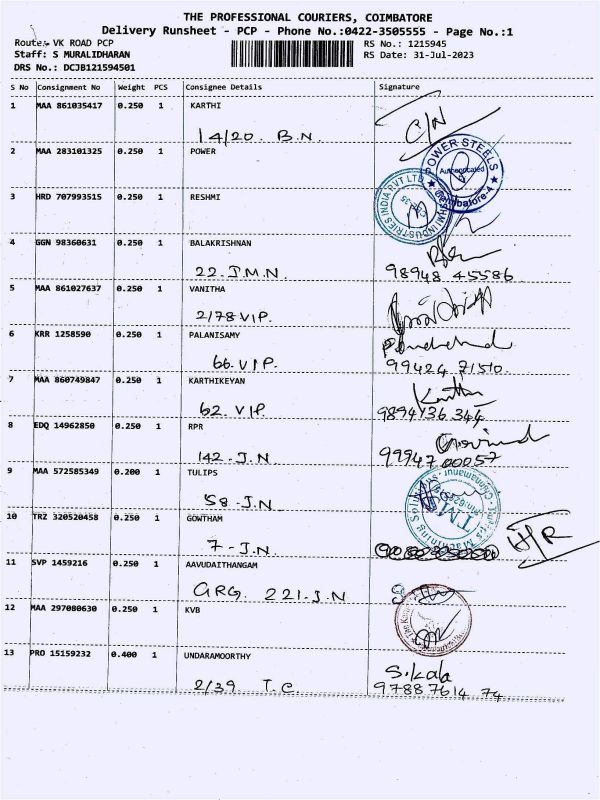 THE PROFESSIONAL COURIERS, COIMBATORE
Delivery Runsheet - PCP - Phone No.:0422-3505555 - Page No.:1
Route:- VK ROAD PCP
RS No.: 1215945
Staff: S MURALIDHARAN
RS Date: 31-Jul-2023
DRS No.: DCJB121594501
S No Consignment No Weight PCS Consignee Details Signature
1 MAA 861035417 0.250 1 KARTHI
14/20. B.N. C/N
2 MAA 283101325 0.250 1 POWER
POWER STEELS
Authenticated
Coimbatore-4
3 HRD 707993515 0.250 1 RESHMI
INDUSTRIES INDIA PVT LTD
4 GGN 98360631 0.250 1 BALAKRISHNAN
22. J.M.N. 98948 45586
5 MAA 861027637 0.250 1 VANITHA
2/78 VIP.
6 KRR 1258590 0.250 1 PALANISAMY
66. VIP. 99424 71510.
7 MAA 860749847 0.250 1 KARTHIKEYAN
62. VIP 9894136 344
8 EDQ 14962850 0.250 1 RPR
Govind
142-J.N 99947 00057
9 MAA 572585349 0.200 1 TULIPS
58-J.N
10 TRZ 320520458 0.250 1 GOWTHAM
7-J.N
11 SVP 1459216 0.250 1 AAVUDAITHANGAM
GRG. 221-J.N
12 MAA 297080630 0.250 1 KVB
13 PRO 15159232 0.400 1 UNDARAMOORTHY
S.Kala
2/39 T.C. 97887614 74